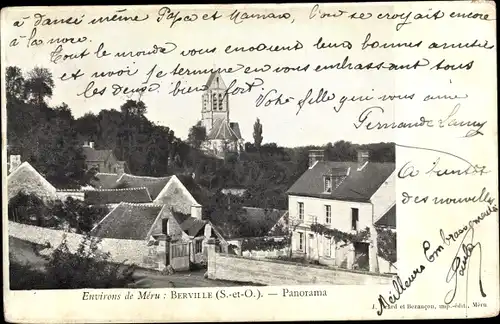 à dansé même Papa et Maman, l'on se croyait encore
à la noce.
Tout le monde vous envoient leur bonnes amitié
et moir je termine en vous embrassant tous
les deux bien fort
Votre fille qui vous aime
Fernande
A bientôt
des nouvelles
Meilleurs
Embrassements
Paula
Environs de Méru : BERVILLE (S.-et-O.). — Panorama
et Besançon, imp.-édit., Méru